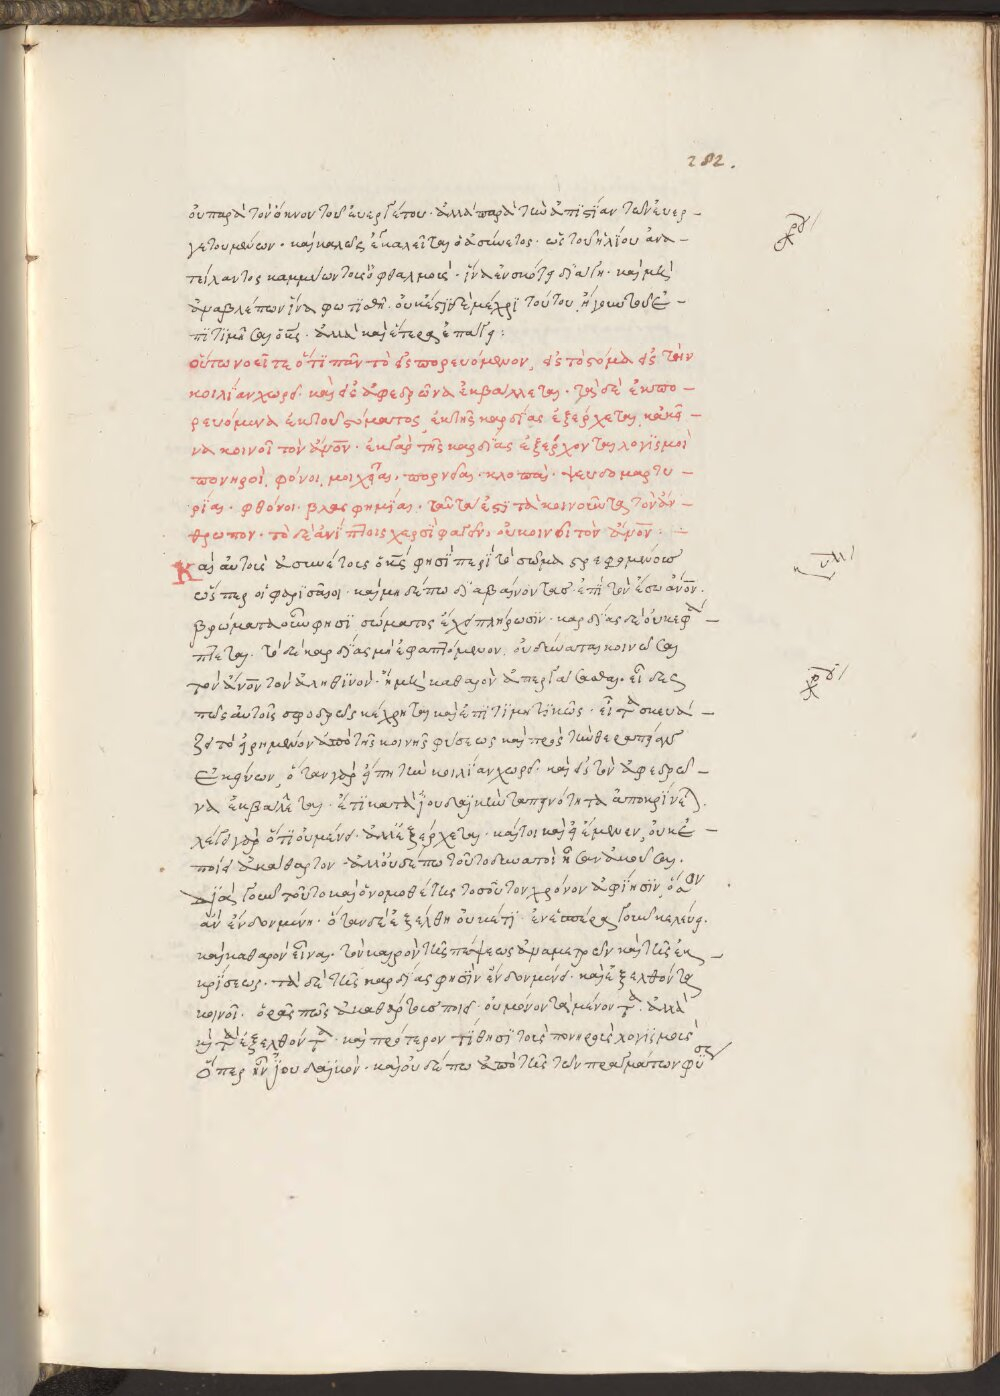 282.
οὐ παρὰ τὸν ὄκνον τοῦ εὐεργέτου· ἀλλὰ παρὰ τὴν ἀπιστίαν τῶν εὐερ-
γετουμένων· καὶ καλῶς ἐκαλεῖτο ὁ ἀσύνετος· ὡς τοῦ ἡλίου ἀνα-
τείλαντος καμμύων τοὺς ὀφθαλμοὺς· ἵνα ἐν σκότει διάγῃ· καὶ μὴ
ἀναβλέπων ἵνα φωτισθῇ· οὐκ ἔστησε δὲ μέχρι τούτου
ἀλλὰ καὶ ἕτερα ἐπάγει:
Οὕτω νοεῖτε ὅτι πᾶν τὸ εἰσπορευόμενον, εἰς τὸ στόμα εἰς τὴν
κοιλίαν χωρεῖ· καὶ εἰς ἀφεδρῶνα ἐκβάλλεται· τὰ δὲ ἐκπο-
ρευόμενα ἐκ τοῦ στόματος, ἐκ τῆς καρδίας ἐξέρχεται, κἀκεῖ-
να κοινοῖ τὸν ἄνον· ἐκ γὰρ τῆς καρδίας ἐξέρχονται λογισμοὶ
πονηροὶ, φόνοι, μοιχεῖαι, πορνεῖαι· κλοπαὶ· ψευδομαρτυ-
ρίαι· φθόνοι· βλασφημίαι· ταῦτα ἐστὶ τὰ κοινοῦντα τὸν ἄν-
θρωπον· τὸ δὲ ἀνίπτοις χερσὶ φαγεῖν, οὐ κοινοῖ τὸν ἄνον·
Καὶ αὐτοὺς ἀσυνέτους ὁ κς φησὶ περὶ τὸ σῶμα στρεφομένους
ὥσπερ οἱ φαρισαῖοι· καὶ μηδέπω διαβαίνοντας ἐπὶ τὸν ἔσω ἄνον·
βρώματα οὖν φησὶ σώματος ἔχει πλήρωσιν· καρδίας δὲ οὐκ ἐφά-
πτεται· τὸ δὲ καρδίας μὴ ἐφαπτόμενον, οὐ δύναται κοινῶσαι
τὸν ἄνον τὸν ἀληθινὸν· ἢ μὴ καθαρὸν ἀπεργάσασθαι· εἶδες
πῶς αὐτοῖς σφοδρῶς κέχρηται καὶ ἐπιτιμητικῶς· εἶτα κατασκευά-
ζει τὸ εἰρημένον ἀπὸ τῆς κοινῆς φύσεως καὶ πρὸς τὴν θεραπείαν
ἐκείνων, ὅταν γὰρ εἴπῃ τὴν κοιλίαν χωρεῖ· καὶ εἰς τὸν ἀφεδρῶ-
να ἐκβάλλεται· ἔτι κατὰ ἰουδαϊκὴν ταπεινότητα ἀποκρίνεται·
λέγει γὰρ ὅτι οὐ μένει· ἀλλ' ἐξέρχεται· καίτοι καὶ εἰ ἔμενεν, οὐκ ἐ-
ποίει ἀκάθαρτον· ἀλλ' οὐδέπω τοῦτο δυνατοὶ ἦσαν ἀκοῦσαι·
τοῦτο καὶ ὁ νομοθέτης τοσοῦτον χρόνον ἀφίησιν, ὅσον
ἂν ἔνδον μένῃ· ὅταν δὲ ἐξέλθῃ οὐκέτι· ἐν ἑσπέρᾳ γοῦν κελεύει
καὶ καθαρὸν εἶναι· τὸν καιρὸν τῆς πέψεως ἀναμετρῶν καὶ τῆς ἐκ-
κρίσεως· τὰ δὲ τῆς καρδίας φησὶν ἔνδον μένει· καὶ ἐξελθόντα
κοινοῖ· ὁρᾷς πῶς ἀκαθάρτους ποιεῖ· οὐ μόνον τὰ μένοντα· ἀλλὰ
καὶ τὰ ἐξελθόντα· καὶ πρότερον τίθησι τοὺς πονηροὺς λογισμοὺς
ὅπερ ἦν ἰουδαϊκόν· καὶ οὐδέπω ἀπὸ τῆς τῶν πραγμάτων φύσε